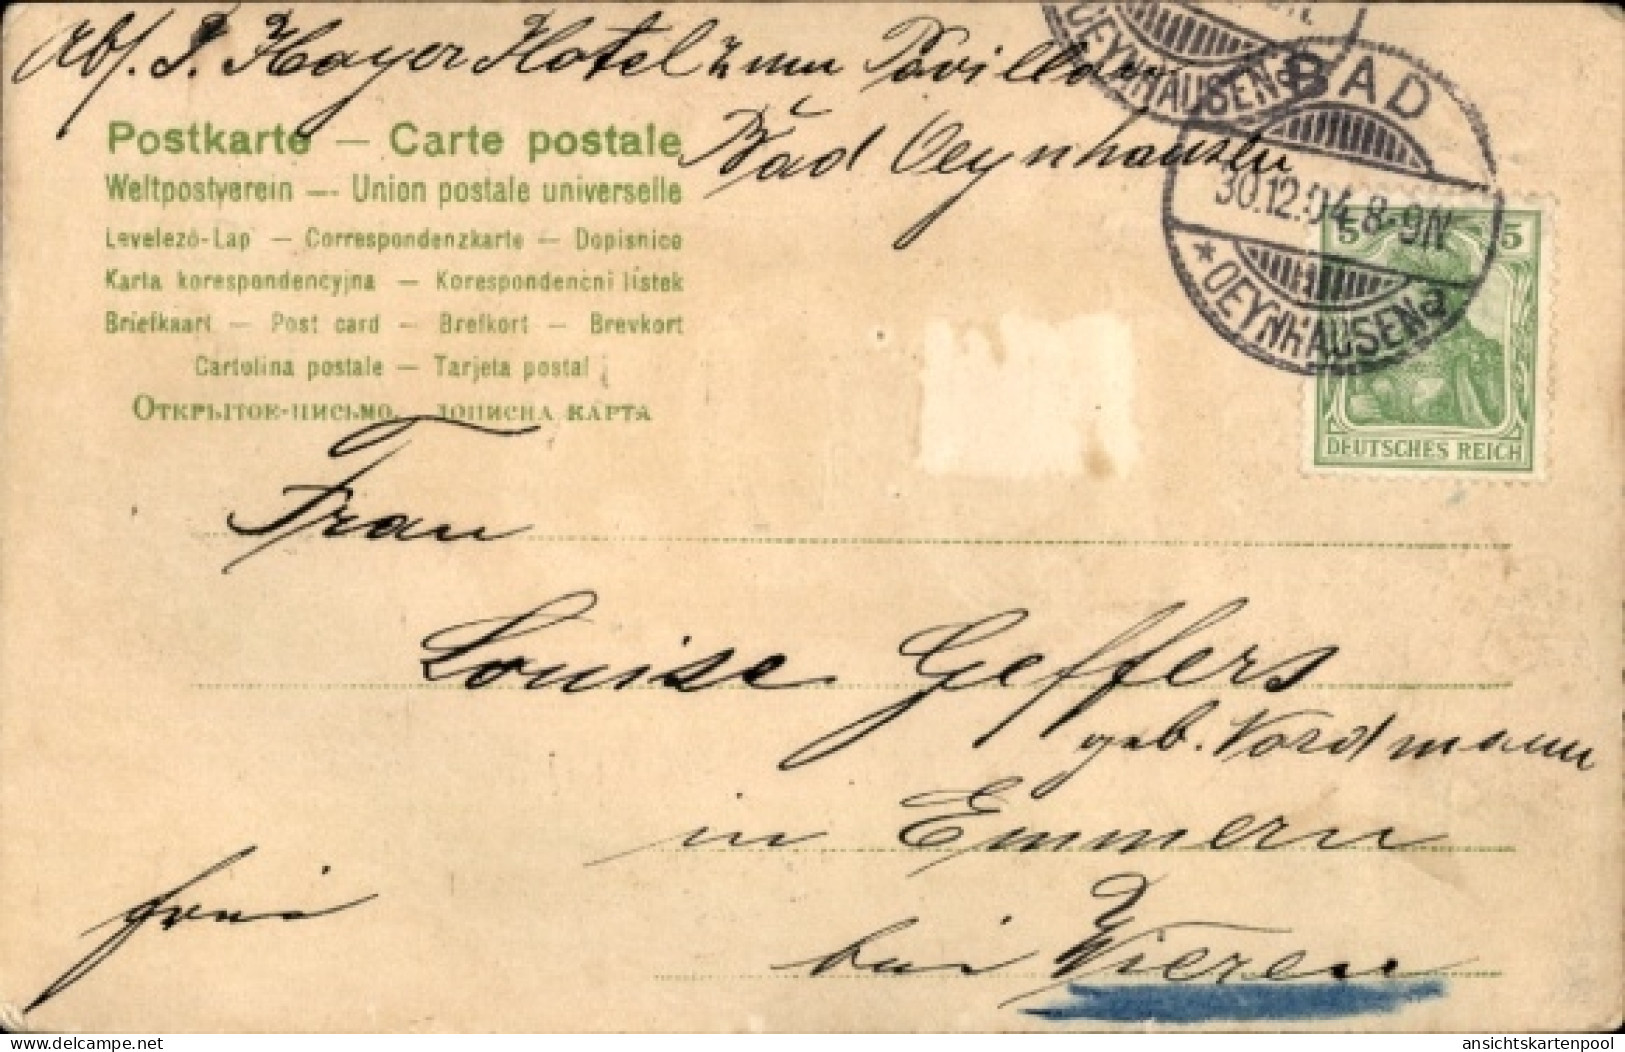 Abs. J. Hayer Hotel zum Pavillon
Bad Oeynhausen
Postkarte — Carte postale
Weltpostverein — Union postale universelle
Levelező-Lap — Correspondenzkarte — Dopisnice
Karta korespondencyjna — Korespondenční lístek
Briefkaart — Post card — Brefkort — Brevkort
Cartolina postale — Tarjeta postal
Открытое-письмо. дописна карта
OEYNHAUSEN a
BAD
30.12.04.8-9N
* OEYNHAUSEN a
5 5
DEUTSCHES REICH
Frau
Louise Geffers
geb. Nordmann
in Emmern
bei
frei
ansichtskartenpool